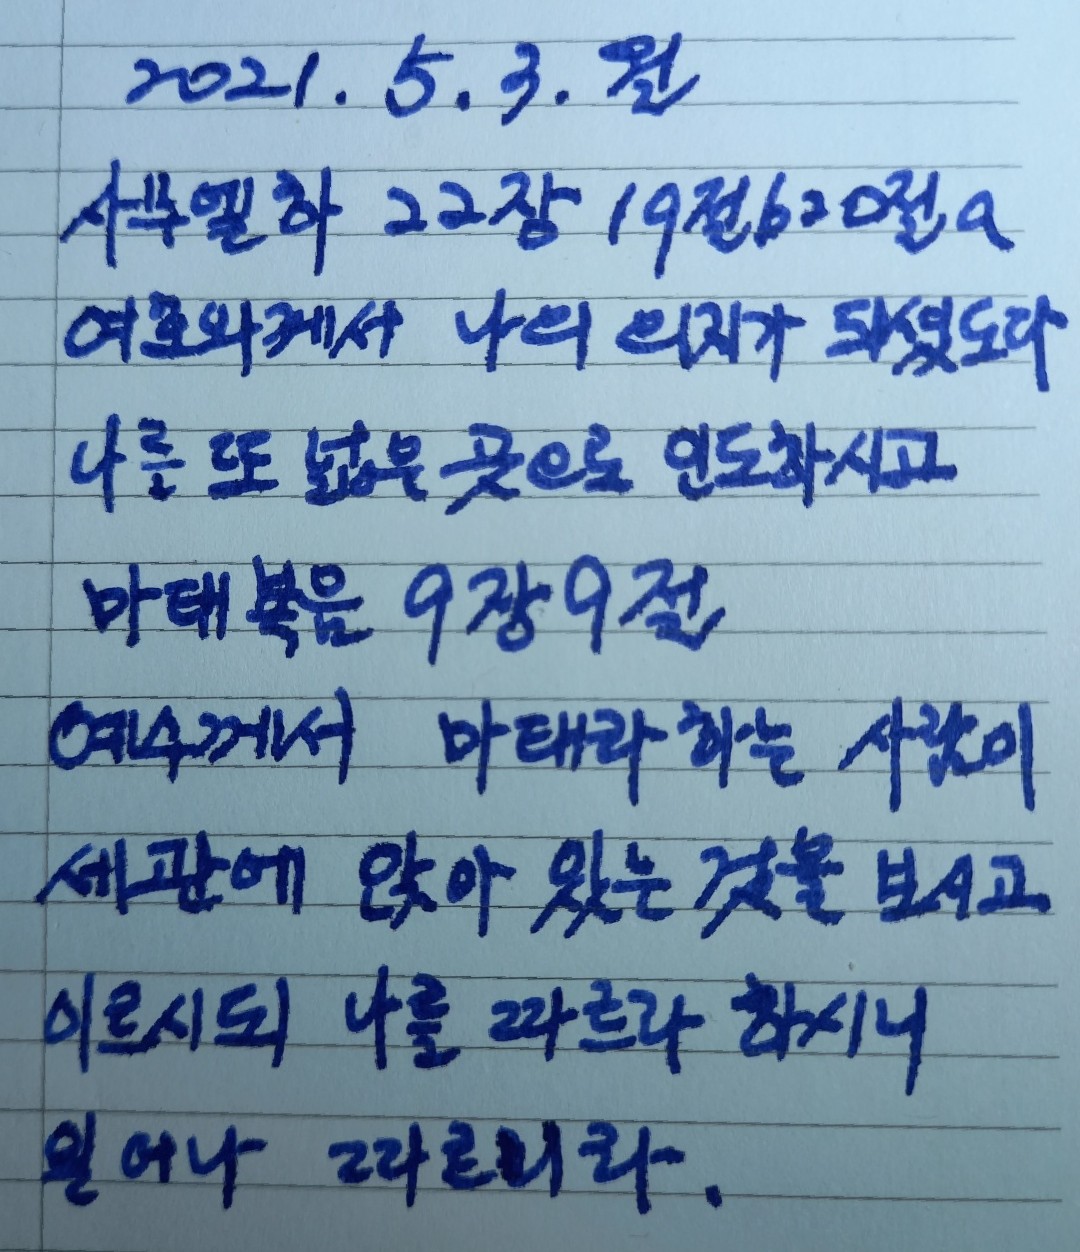 2021. 5. 3. 월
사무엘하 22장 19절b20절a
여호와께서 나의 의지가 되셨도다
나를 또 넓은 곳으로 인도하시고
마태복음 9장9절
예수께서 마태라 하는 사람이
세관에 앉아 있는 것을 보시고
이르시되 나를 따르라 하시니
일어나 따르니라.